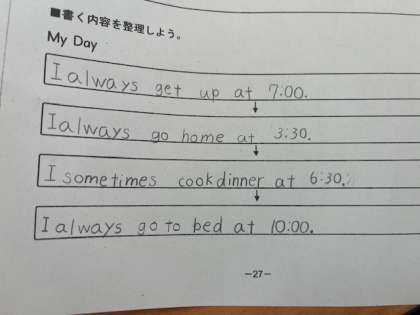 ■書く内容を整理しよう。
My Day
I always get up at 7:00.
I always go home at 3:30.
I sometimes cook dinner at 6:30.
I always go to bed at 10:00.
-27-